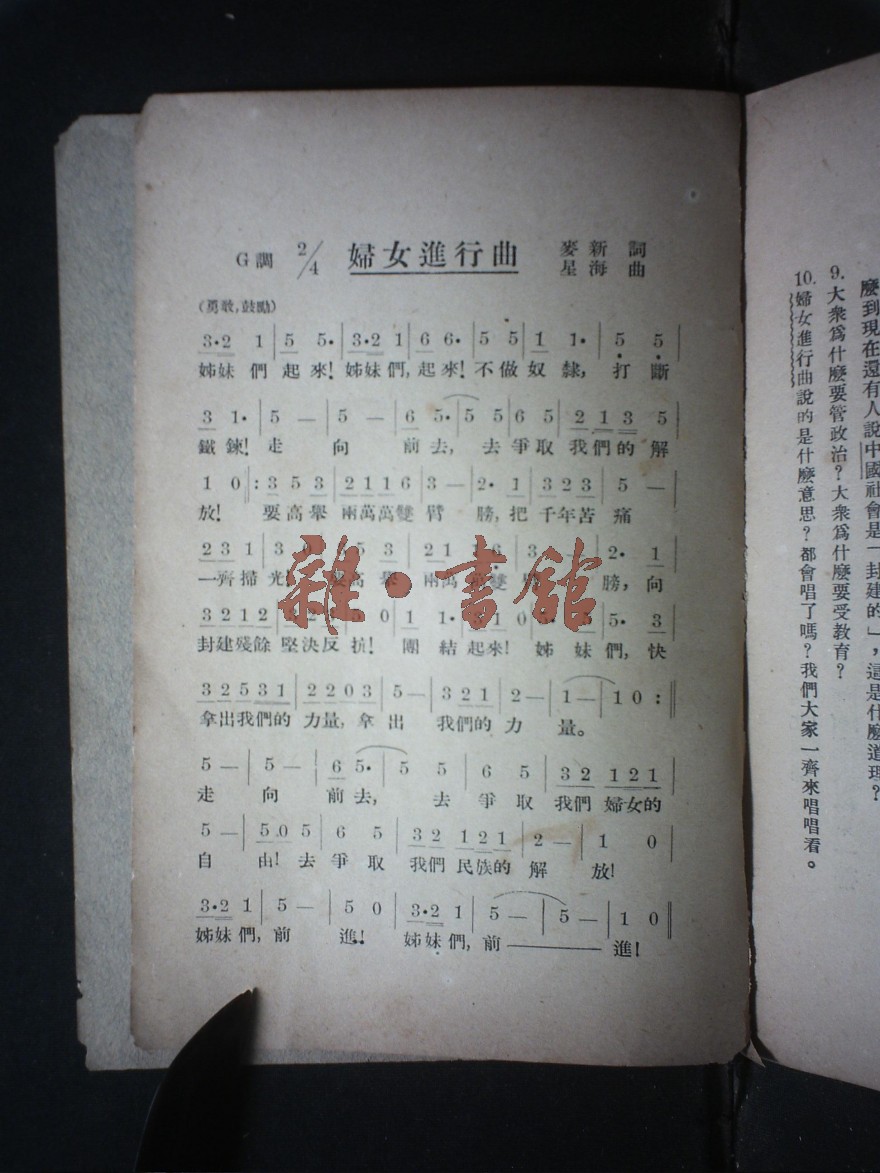 G調 2/4 婦女進行曲 麥新 詞
星海 曲
(勇敢,鼓勵)
3·2 1 | 5 5· | 3·2 1 | 6 6· | 5 5 | 1 1· | 5 5 |
姊妹們起來!姊妹們,起來!不做奴隸,打斷
3 1· | 5 — | 5 — | 6 5· | 5 5 | 6 5 | 2 1 3 5
鐵鍊!走向前去,去爭取我們的解
1 0 :| 3 5 3 | 2 1 1 6 | 3 — | 2· 1 | 3 2 3 | 5 —
放!要高舉兩萬萬雙臂膀,把千年苦痛
2 3 1 | 3 0 | 3 5 3 | 2 1 6 | 3 — | 2· 1
一齊掃光!要高舉兩萬萬雙臂膀,向
3 2 1 2 | 0 | 1 1· | 1 0 | 5· 3
封建殘餘堅決反抗!團結起來!姊妹們,快
3 2 5 3 1 | 2 2 0 3 | 5 — | 3 2 1 | 2 — | 1 — | 1 0 :‖
拿出我們的力量,拿出我們的力量。
5 — | 5 — | 6 5· | 5 5 | 6 5 | 3 2 1 2 1 |
走向前去,去爭取我們婦女的
5 — | 5.0 5 | 6 5 | 3 2 1 2 1 | 2 — | 1 0 |
自由!去爭取我們民族的解放!
3·2 1 | 5 — | 5 0 | 3·2 1 | 5 — | 5 — | 1 0 ‖
姊妹們,前進!姊妹們,前——進!
雜·書館
麼到現在還有人說中國社會是「封建的」,這是什麼道理?
9.大衆爲什麼要管政治?大衆爲什麼要受教育?
10.婦女進行曲說的是什麼意思?都會唱了嗎?我們大家一齊來唱唱看。